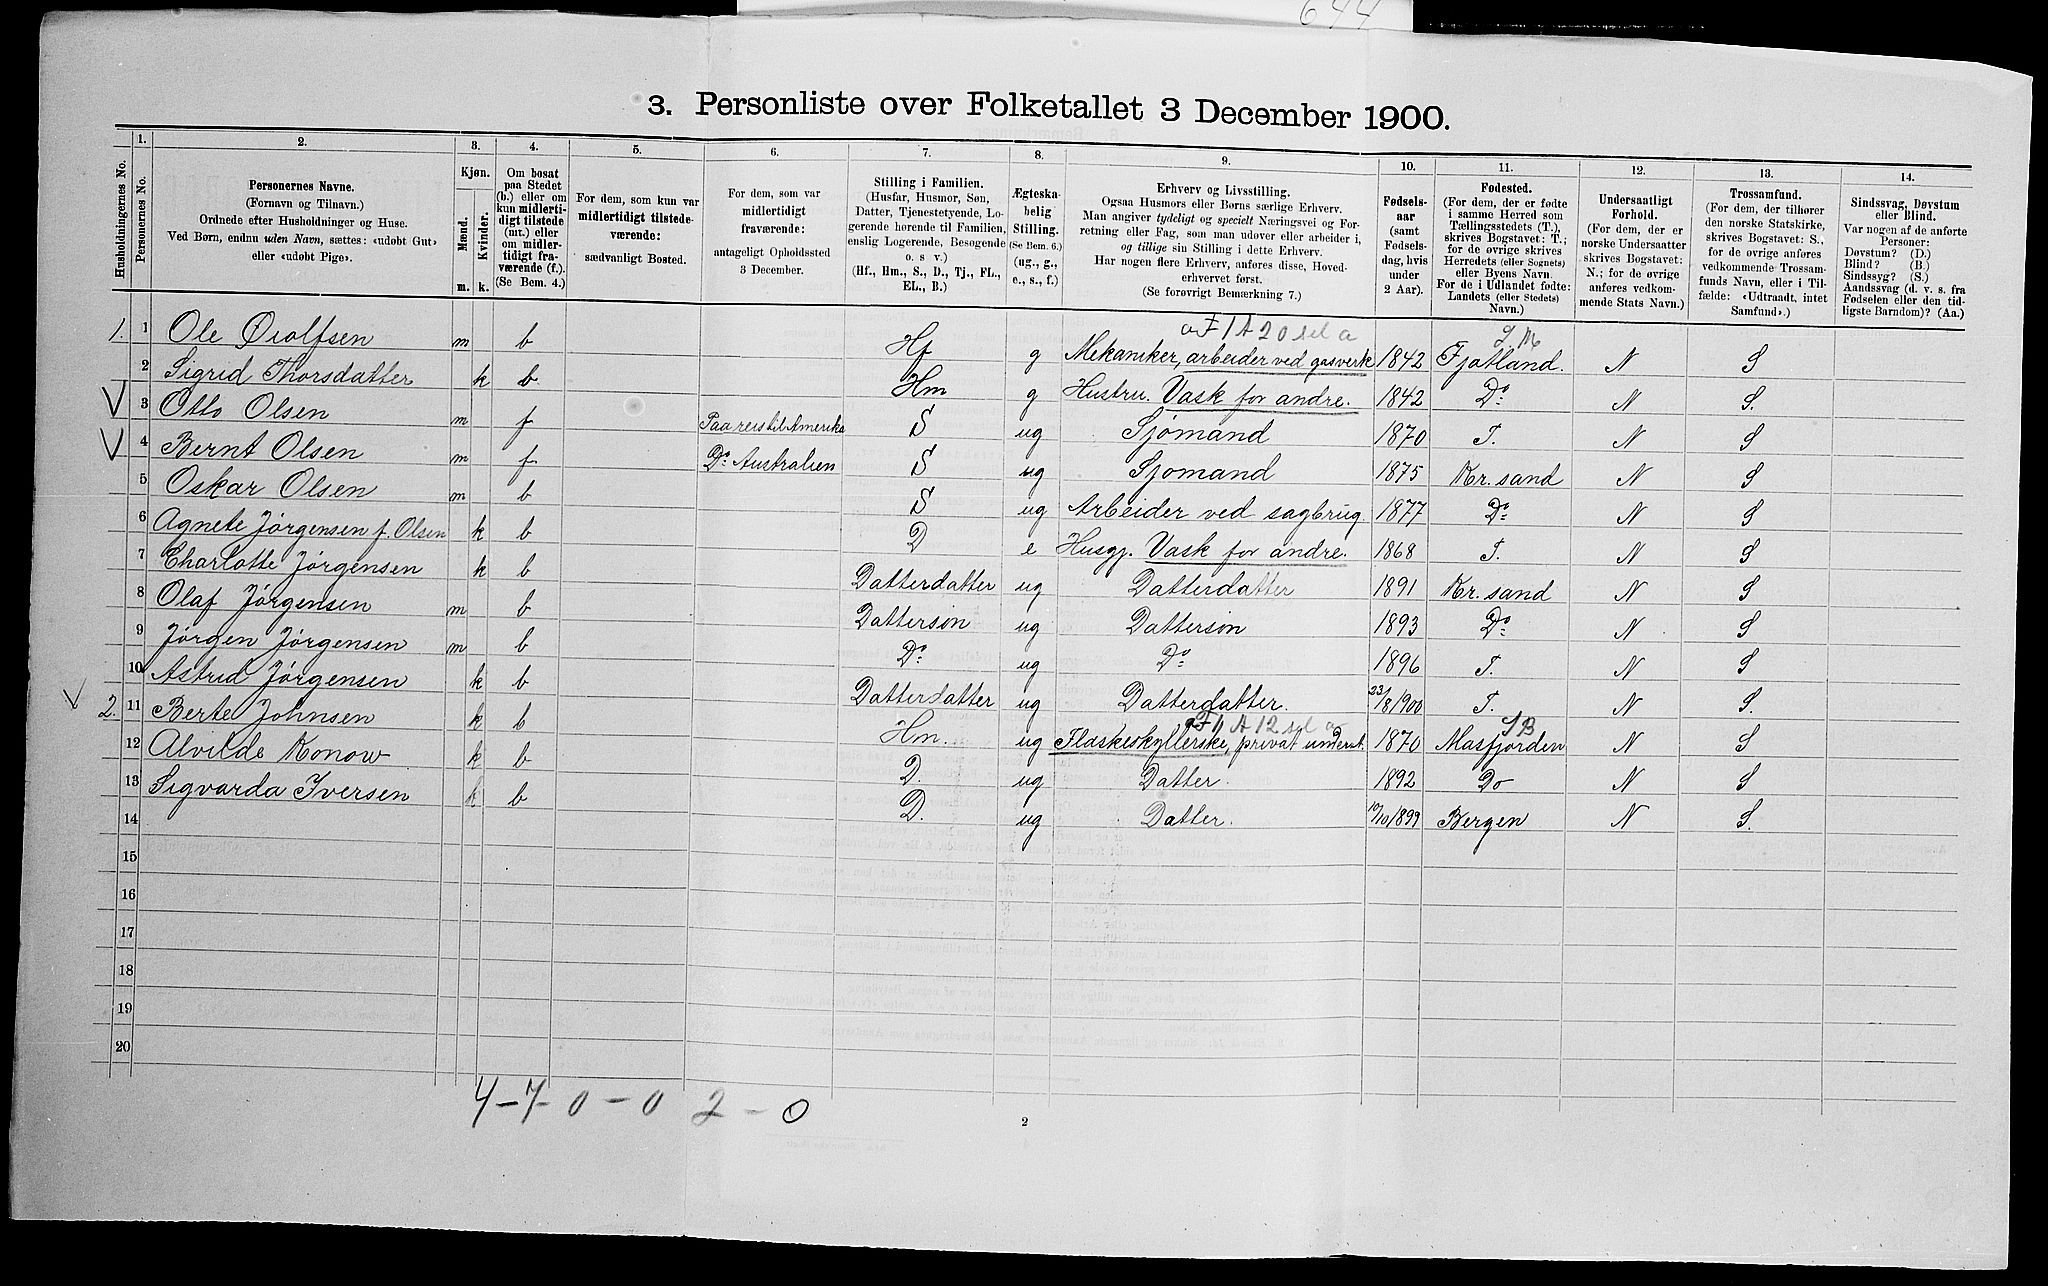 644
3. Personliste over Folketallet 3 December 1900.
Husholdningernes No.
1.
Personernes No.
2.
Personernes Navne.
(Fornavn og Tilnavn.)
Ordnede efter Husholdninger og Huse.
Ved Børn, endnu uden Navn, sættes: «udøbt Gut»
eller «udøbt Pige».
3.
Kjøn.
Mænd.
Kvinder.
m. k.
4.
Om bosat
paa Stedet
(b.) eller om
kun midlerti-
digt tilstede
(mt.) eller
om midler-
tidigt fra-
værende (f.).
(Se Bem. 4.)
5.
For dem, som kun var
midlertidigt tilstede-
værende:
sædvanligt Bosted.
6.
For dem, som var
midlertidigt
fraværende:
antageligt Opholdssted
3 December.
7.
Stilling i Familien.
(Husfar, Husmor, Søn,
Datter, Tjenestetyende, Lo-
gerende hørende til Familien,
enslig Logerende, Besøgende
o. s v.)
(Hf., Hm., S., D., Tj., FL.,
EL., B.)
8.
Ægteska-
belig
Stilling.
(Se Bem. 6.)
(ug., g.,
e., s., f.)
9.
Erhverv og Livsstilling.
Ogsaa Husmors eller Børns særlige Erhverv.
Man angiver tydeligt og specielt Næringsvei og For-
retning eller Fag, som man udøver eller arbeider i,
og tillige sin Stilling i dette Erhverv.
Har nogen flere Erhverv, anføres disse, Hoved-
erhvervet først.
(Se forøvrigt Bemærkning 7.)
10.
Fødsels-
aar
(samt
Fødsels-
dag, hvis
under
2 Aar).
11.
Fødested.
(For dem, der er fødte
i samme Herred som
Tællingsstedets (T.),
skrives Bogstavet: T.;
for de øvrige skrives
Herredets (eller Sognets)
eller Byens Navn.
For de i Udlandet fødte:
Landets (eller Stedets)
Navn.)
12.
Undersaatligt
Forhold.
(For dem, der er
norske Undersaatter
skrives Bogstavet:
N.; for de øvrige
anføres vedkom-
mende Stats Navn.)
13.
Trossamfund.
(For dem, der tilhører
den norske Statskirke,
skrives Bogstavet: S.,
for de øvrige anføres
vedkommende Trossam-
funds Navn, eller i Til-
fælde: «Udtraadt, intet
Samfund».)
14.
Sindssvag, Døvstum
eller Blind.
Var nogen af de anførte
Personer:
Døvstum? (D.)
Blind? (B.)
Sindssyg? (S.)
Aandssvag (d. v. s. fra
Fødselen eller den tid-
ligste Barndom)? (Aa.)
1. 1 Ole Øiolfsen m b Hf g Mekaniker, arbeider ved gasverk 1842 Fjotland. N S
2 Sigrid Thorsdatter k b Hm g Hustru. Vask for andre. 1842 Do N S.
3 Otto Olsen m f Paa reis til Amerika S ug Sjømand 1870 T. N S
4 Bernt Olsen m f Do Australien S ug Sjømand 1875 Kr. sand N S
5 Oskar Olsen m b S ug Arbeider ved sagbrug. 1877 Do N S
6 Agnete Jørgensen f. Olsen k b D e Husgj. Vask for andre. 1868 T. N S
7 Charlotte Jørgensen k b Datterdatter ug Datterdatter 1891 Kr. sand N S
8 Olaf Jørgensen m b Dattersøn ug Dattersøn 1893 Do N S
9 Jørgen Jørgensen m b Do ug Do 1896 T. N S
10 Astrid Jørgensen k b Datterdatter ug Datterdatter. 23/8 1900 T. N S.
2. 11 Berte Johnsen k b Hm. ug Flaskeskyllerske, privat underst. 1870 Masfjorden N S
12 Alvilde Konow k b D. ug Datter. 1892 Do N S
13 Sigvarda Iversen k b D. ug Datter. 10/10 1899 Bergen N S.
14
15
16
17
18
19
20
4 - 7 - 0 - 0 2 - 0
2